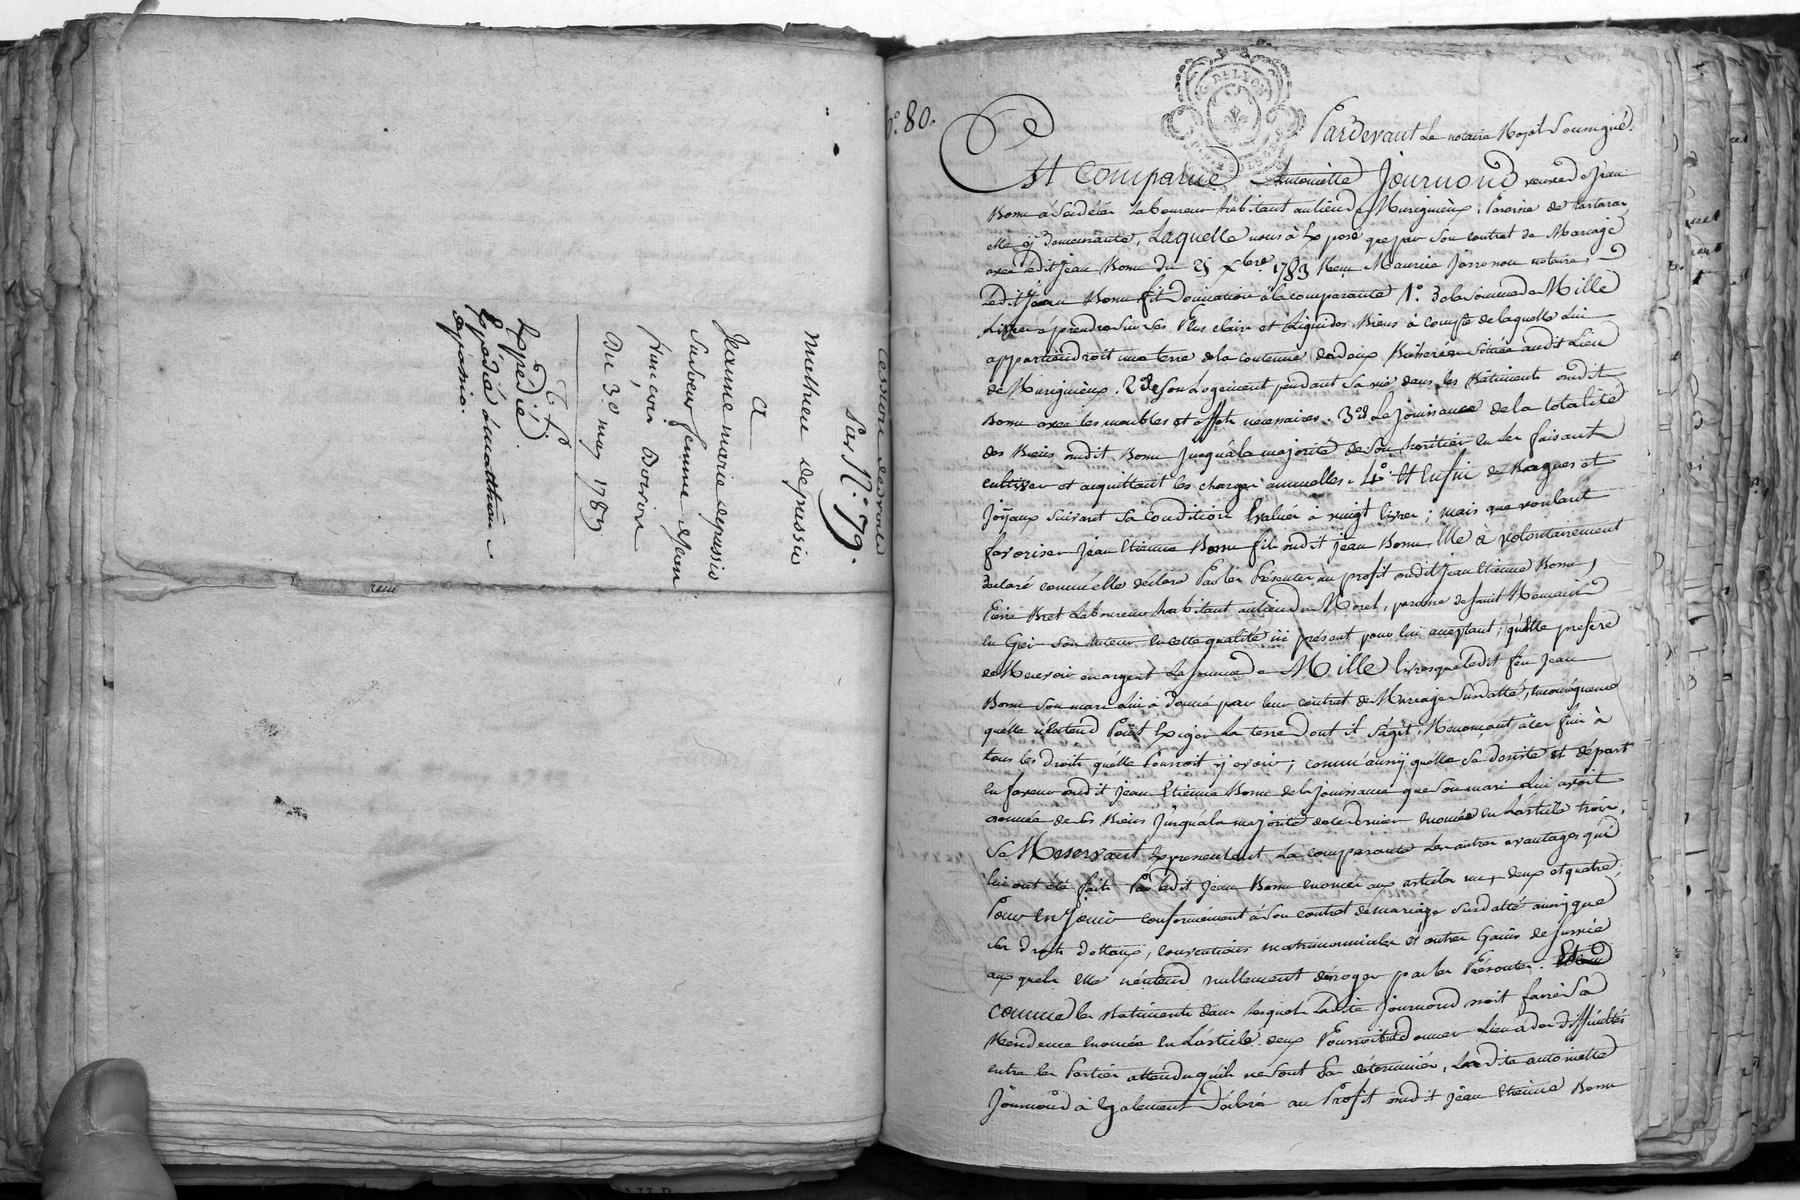 Cession de droits
Par N.° 79.
mathieu depassio
a
Jeanne marie depassio
femme de Jean
Du 30 may 1789
Expédié
Expédié à mathieu
depassio.
N.° 80.
DE LYON
Pardevant Le notaire Royal Soussigné.
Est Comparue Antoinette Journoud veuve de Jean
Bonn à Son décès Laboureur habitant au lieu de Murignieux, Paroisse de
elle y demeurante, Laquelle nous à Exposé que par Son contrat de Mariage
avec ledit Jean Bonn du 25 xbre 1783 Reçu Maurice notaire,
Ledit Jean Bonn fit Donnation à la comparante 1.° de la Somme de Mille
Livres à prendre Sur Ses Plus clairs et Liquides Biens à compte de laquelle Lui
appartiendroit une terre de la contenue de deux Bicherées Située audit Lieu
de Murignieux. 2.° de Son Logement pendant Sa vie dans les Bâtiments dudit
Bonn avec les meubles et effets nécessaires. 3.° de La jouissance de la totalité
des Biens dudit Bonn jusqu'à la majorité de Son héritier en les faisant
cultiver et acquittant les charges annuelles. 4.° Et Enfin de Bagues et
Joyaux suivant Sa Condition Evalués à vingt livres; mais que voulant
favoriser Jean Etienne Bonn fils dudit Jean Bonn, Elle à volontairement
déclaré comme elle déclare Par les Présentes au profit dudit Jean Etienne Bonn,
Pierre Bret Laboureur habitant au lieu de Morel, paroisse de Saint Romain
en Gier Son tuteur En cette qualité ici présent pour lui acceptant; qu'Elle préfère
de Recevoir en argent La Somme de Mille livres que ledit feu Jean
Bonn Son mari Lui à donné par leur contrat de Mariage Susdatté, en conséquence
quelle n'entend Point Exiger La terre dont il S'agit, Renonçant à ces fins à
tous les droits quelle Pourroit y avoir; comme aussy quelle Se désiste et départ
en faveur dudit Jean Etienne Bonn de la jouissance que Son mari Lui avoit
donnée de Ses Biens jusqu'a la majorité de ce dernier Enoncée en L'article trois,
Se Réservant Expressement La comparante Les autres avantages qui
lui ont été faits Par ledit Jean Bonn enoncés aux articles un, deux et quatre,
Pour En Jouir conformément à Son contrat de mariage Susdatté ainsy que
Ses droits dottaux, conventions matrimonialles et autres Gains de Survie
aux quels elle n'entend nullement déroger par les Présentes.
Comme les Batiments dans lesquels Ladite Journoud doit faire Sa
Résidence Enoncée en L'article deux Pourroient donner Lieu à des difficultés
entre les Parties attendu qu'ils ne Sont Pas déterminés, Ladite antoinette
Journoud à Egalement Déclaré au Profit dudit Jean Etienne Bonn